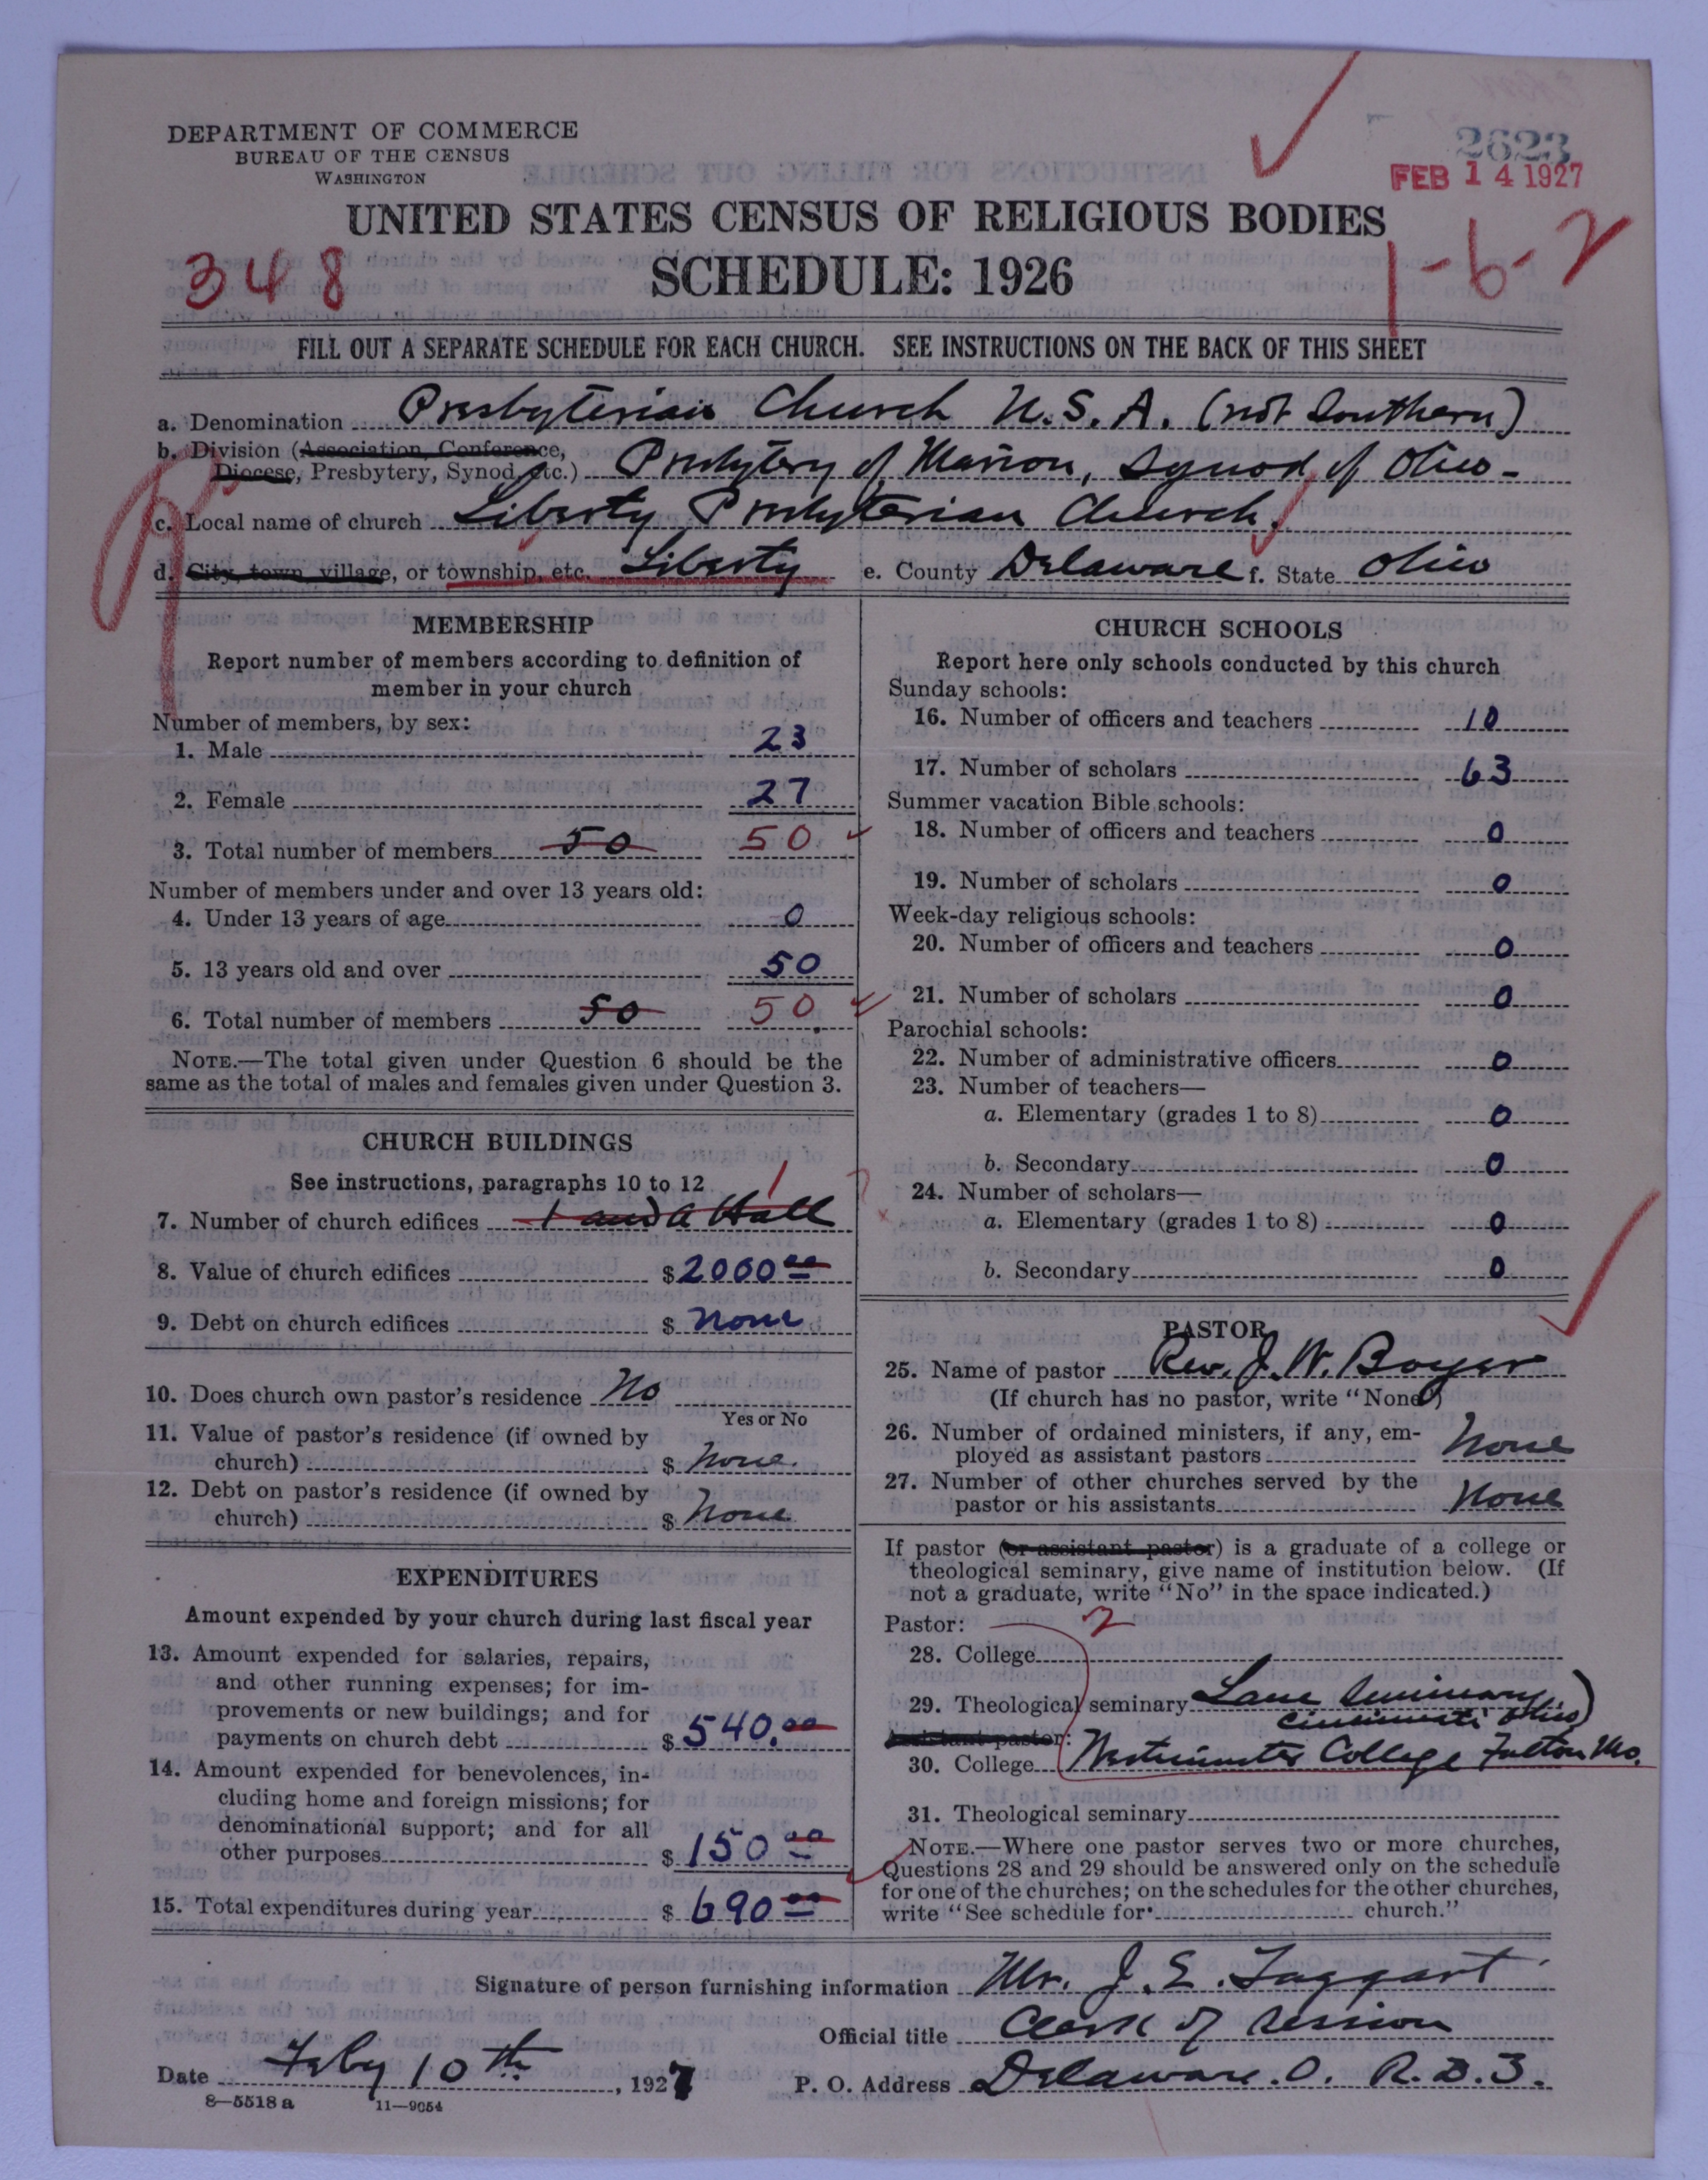 DEPARTMENT OF COMMERCE
BUREAU OF THE CENSUS
WASHINGTON
2623
FEB 14 1927
UNITED STATES CENSUS OF RELIGIOUS BODIES
348
SCHEDULE: 1926
1-6-2
FILL OUT A SEPARATE SCHEDULE FOR EACH CHURCH. SEE INSTRUCTIONS ON THE BACK OF THIS SHEET
a. Denomination Presbyterian Church U.S.A. (not Southern)
b. Division (Association, Conference,
Diocese, Presbytery, Synod, etc.) Presbytery of Marion, Synod of Ohio-
c. Local name of church Liberty Presbyterian Church.
d. City, town, village, or township, etc. Liberty e. County Delaware f. State Ohio
MEMBERSHIP
Report number of members according to definition of
member in your church
Number of members, by sex:
1. Male 23
2. Female 27
3. Total number of members 50 50
Number of members under and over 13 years old:
4. Under 13 years of age 0
5. 13 years old and over 50
6. Total number of members 50 50
NOTE.—The total given under Question 6 should be the
same as the total of males and females given under Question 3.
CHURCH BUILDINGS
See instructions, paragraphs 10 to 12
1
7. Number of church edifices 1 and a Hall
8. Value of church edifices $2000 00
9. Debt on church edifices $ None
10. Does church own pastor's residence No
Yes or No
11. Value of pastor's residence (if owned by
church) $ None.
12. Debt on pastor's residence (if owned by
church) $ None
EXPENDITURES
Amount expended by your church during last fiscal year
13. Amount expended for salaries, repairs,
and other running expenses; for im-
provements or new buildings; and for
payments on church debt $540.00
14. Amount expended for benevolences, in-
cluding home and foreign missions; for
denominational support; and for all
other purposes $150 00
15. Total expenditures during year $ 690 00
CHURCH SCHOOLS
Report here only schools conducted by this church
Sunday schools:
16. Number of officers and teachers 10
17. Number of scholars 63
Summer vacation Bible schools:
18. Number of officers and teachers 0
19. Number of scholars 0
Week-day religious schools:
20. Number of officers and teachers 0
21. Number of scholars 0
Parochial schools:
22. Number of administrative officers 0
23. Number of teachers—
a. Elementary (grades 1 to 8) 0
b. Secondary 0
24. Number of scholars—
a. Elementary (grades 1 to 8) 0
b. Secondary 0
PASTOR
25. Name of pastor Rev. J. W. Boyer
(If church has no pastor, write "None")
26. Number of ordained ministers, if any, em-
ployed as assistant pastors None
27. Number of other churches served by the
pastor or his assistants None
If pastor (or assistant pastor) is a graduate of a college or
theological seminary, give name of institution below. (If
not a graduate, write "No" in the space indicated.)
Pastor: 2
28. College
29. Theological seminary Lane Seminary,
Cincinnati Ohio)
Assistant pastor:
30. College Westminster College Fulton Mo.
31. Theological seminary
NOTE.—Where one pastor serves two or more churches,
Questions 28 and 29 should be answered only on the schedule
for one of the churches; on the schedules for the other churches,
write "See schedule for church."
Signature of person furnishing information Mr. J. E. Taggart
Official title Clerk of Session
Date Feby 10th, 1927 P. O. Address Delaware. O. R. D. 3.
8—5518 a 11—9054